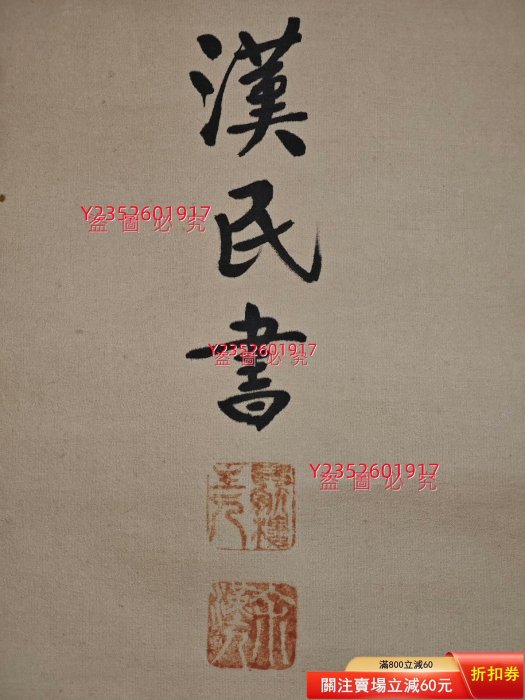 漢
民
書
Y2352601917
盗圖必究
Y2352601917
盗圖必究
Y2352601917
盗圖必究
滿800立減60
關注賣場立減60元
折扣券